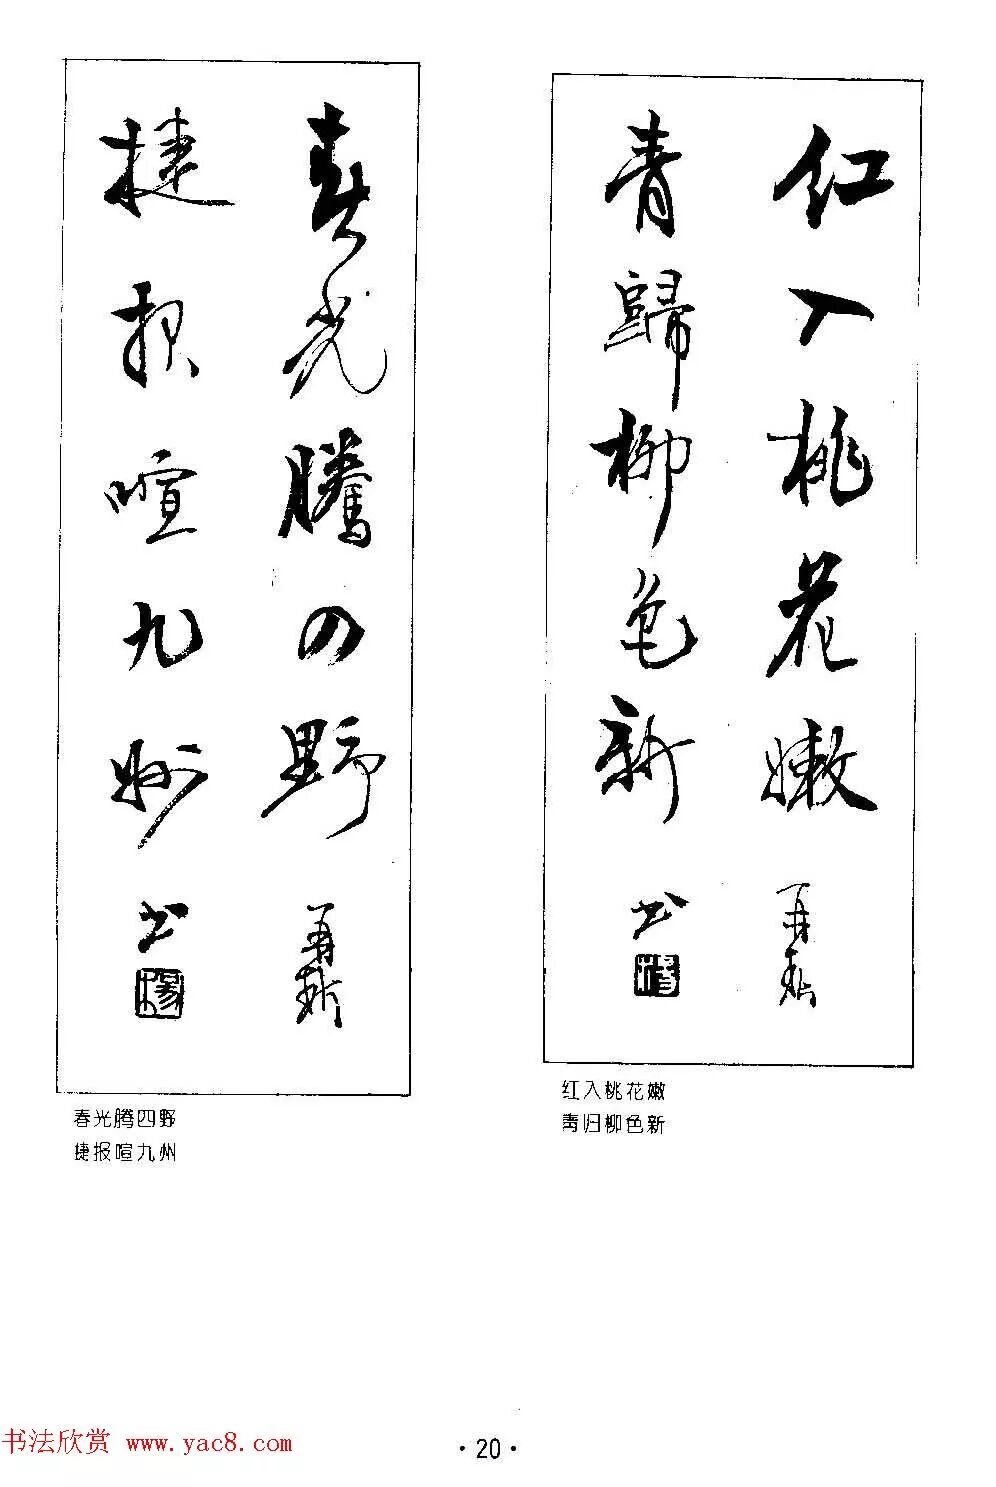 红入桃花嫩
青歸柳色新
再新
书
楊
红入桃花嫩
青归柳色新
春光騰四野
捷报喧九州
再新
书
楊
春光腾四野
捷报喧九州
书法欣赏 www.yac8.com
·20·